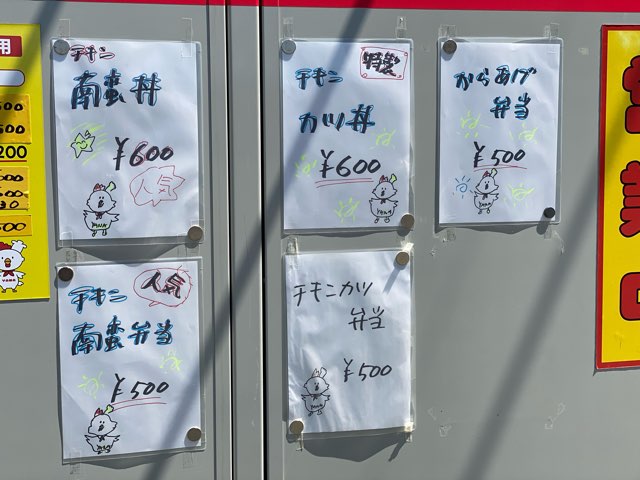 チキン
南蛮丼
¥600
人気
チキン
特製
カツ丼
¥600
からあげ
弁当
¥500
人気
チキン
南蛮弁当
¥500
チキンカツ
弁当
¥500